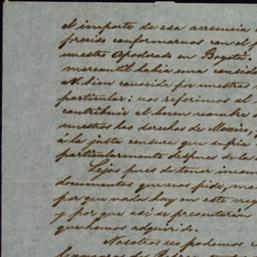 el importe de esa acreencia
forcido conformarnos con el
nuestro Apoderado en Bogotá.
mercantil habia una
bien conocida por nuestras
particular: nos referimos al
contribuir al buen nombre
nuestros los derechos de
á la justa censura que sufria
particularmente despues de la
Lejos pues de tener
documentos que nos pide,
por que nada hay en este
y por que asi se presentarán
que hemos adquirido.
Nosotros no podemos